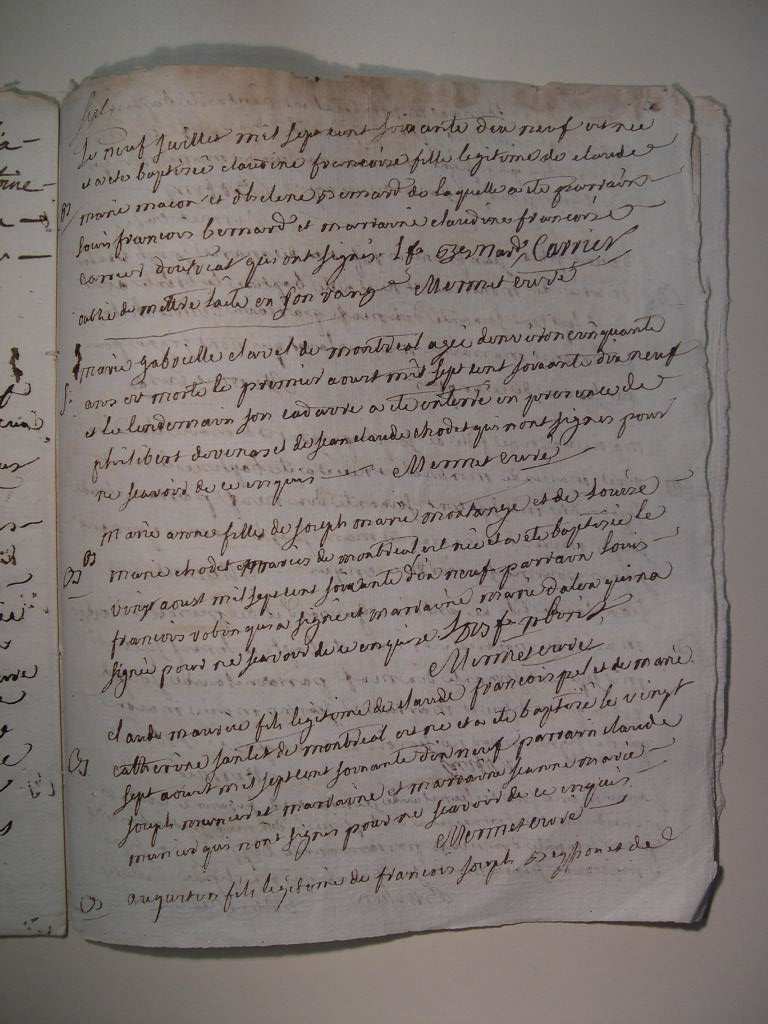 Le neuf Juillet mil sept cent soixante dix neuf est née
et a été baptisée claudine francoise fille legitime de claude
marie macon et d'helene Bernard de laquelle a été parrain
louis francois bernard et marraine claudine francoise
carrier d'outocat qui ont signés. L fs Bernard, Carrier
oublié de mettre l'acte en son rang Mermet curé
marie gabrielle clavel de montreal agée d'environ cinquante
S. ans est morte le premier aoust mil sept cent soixante dix neuf
et le lendemain son cadavre a été enterré en presence de
philibert devenas et de jean claude chodet qui nont signés pour
ne scavoir de ce enquis Mermet curé
Marie anne fille de joseph marie montange et de Louise
Bs marie chodet mariés de montreal est née et a été baptisée le
vingt aoust mil sept cent soixante dix neuf parrain louis
francois robin qui a signé et marraine marie dalea qui na
signée pour ne scavoir de ce enquise. Lois fs robin
Mermet curé
claude maurice fils legitime de claude francois pel et de marie
Bs catherine jantet de montreal est né et a été baptisé le vingt
sept aoust mil sept cent soixante dix neuf parrain claude
joseph munier et marraine jeanne marie
munier qui nont signés pour ne scavoir de ce enquis
Mermet curé
Bs augustin fils legitime de francois joseph et de